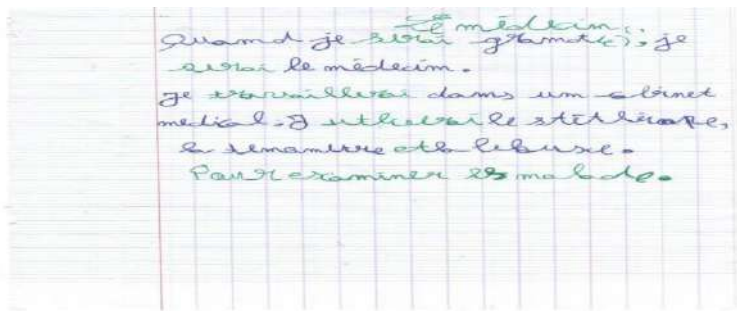 Le médecin :
Quand je serai grand(e), je
serai le médecin.
je travaillerai dans um abinet
medical. J utliserai le stéthéscope,
la temamettre et la lebuse.
Pour examiner les malade.